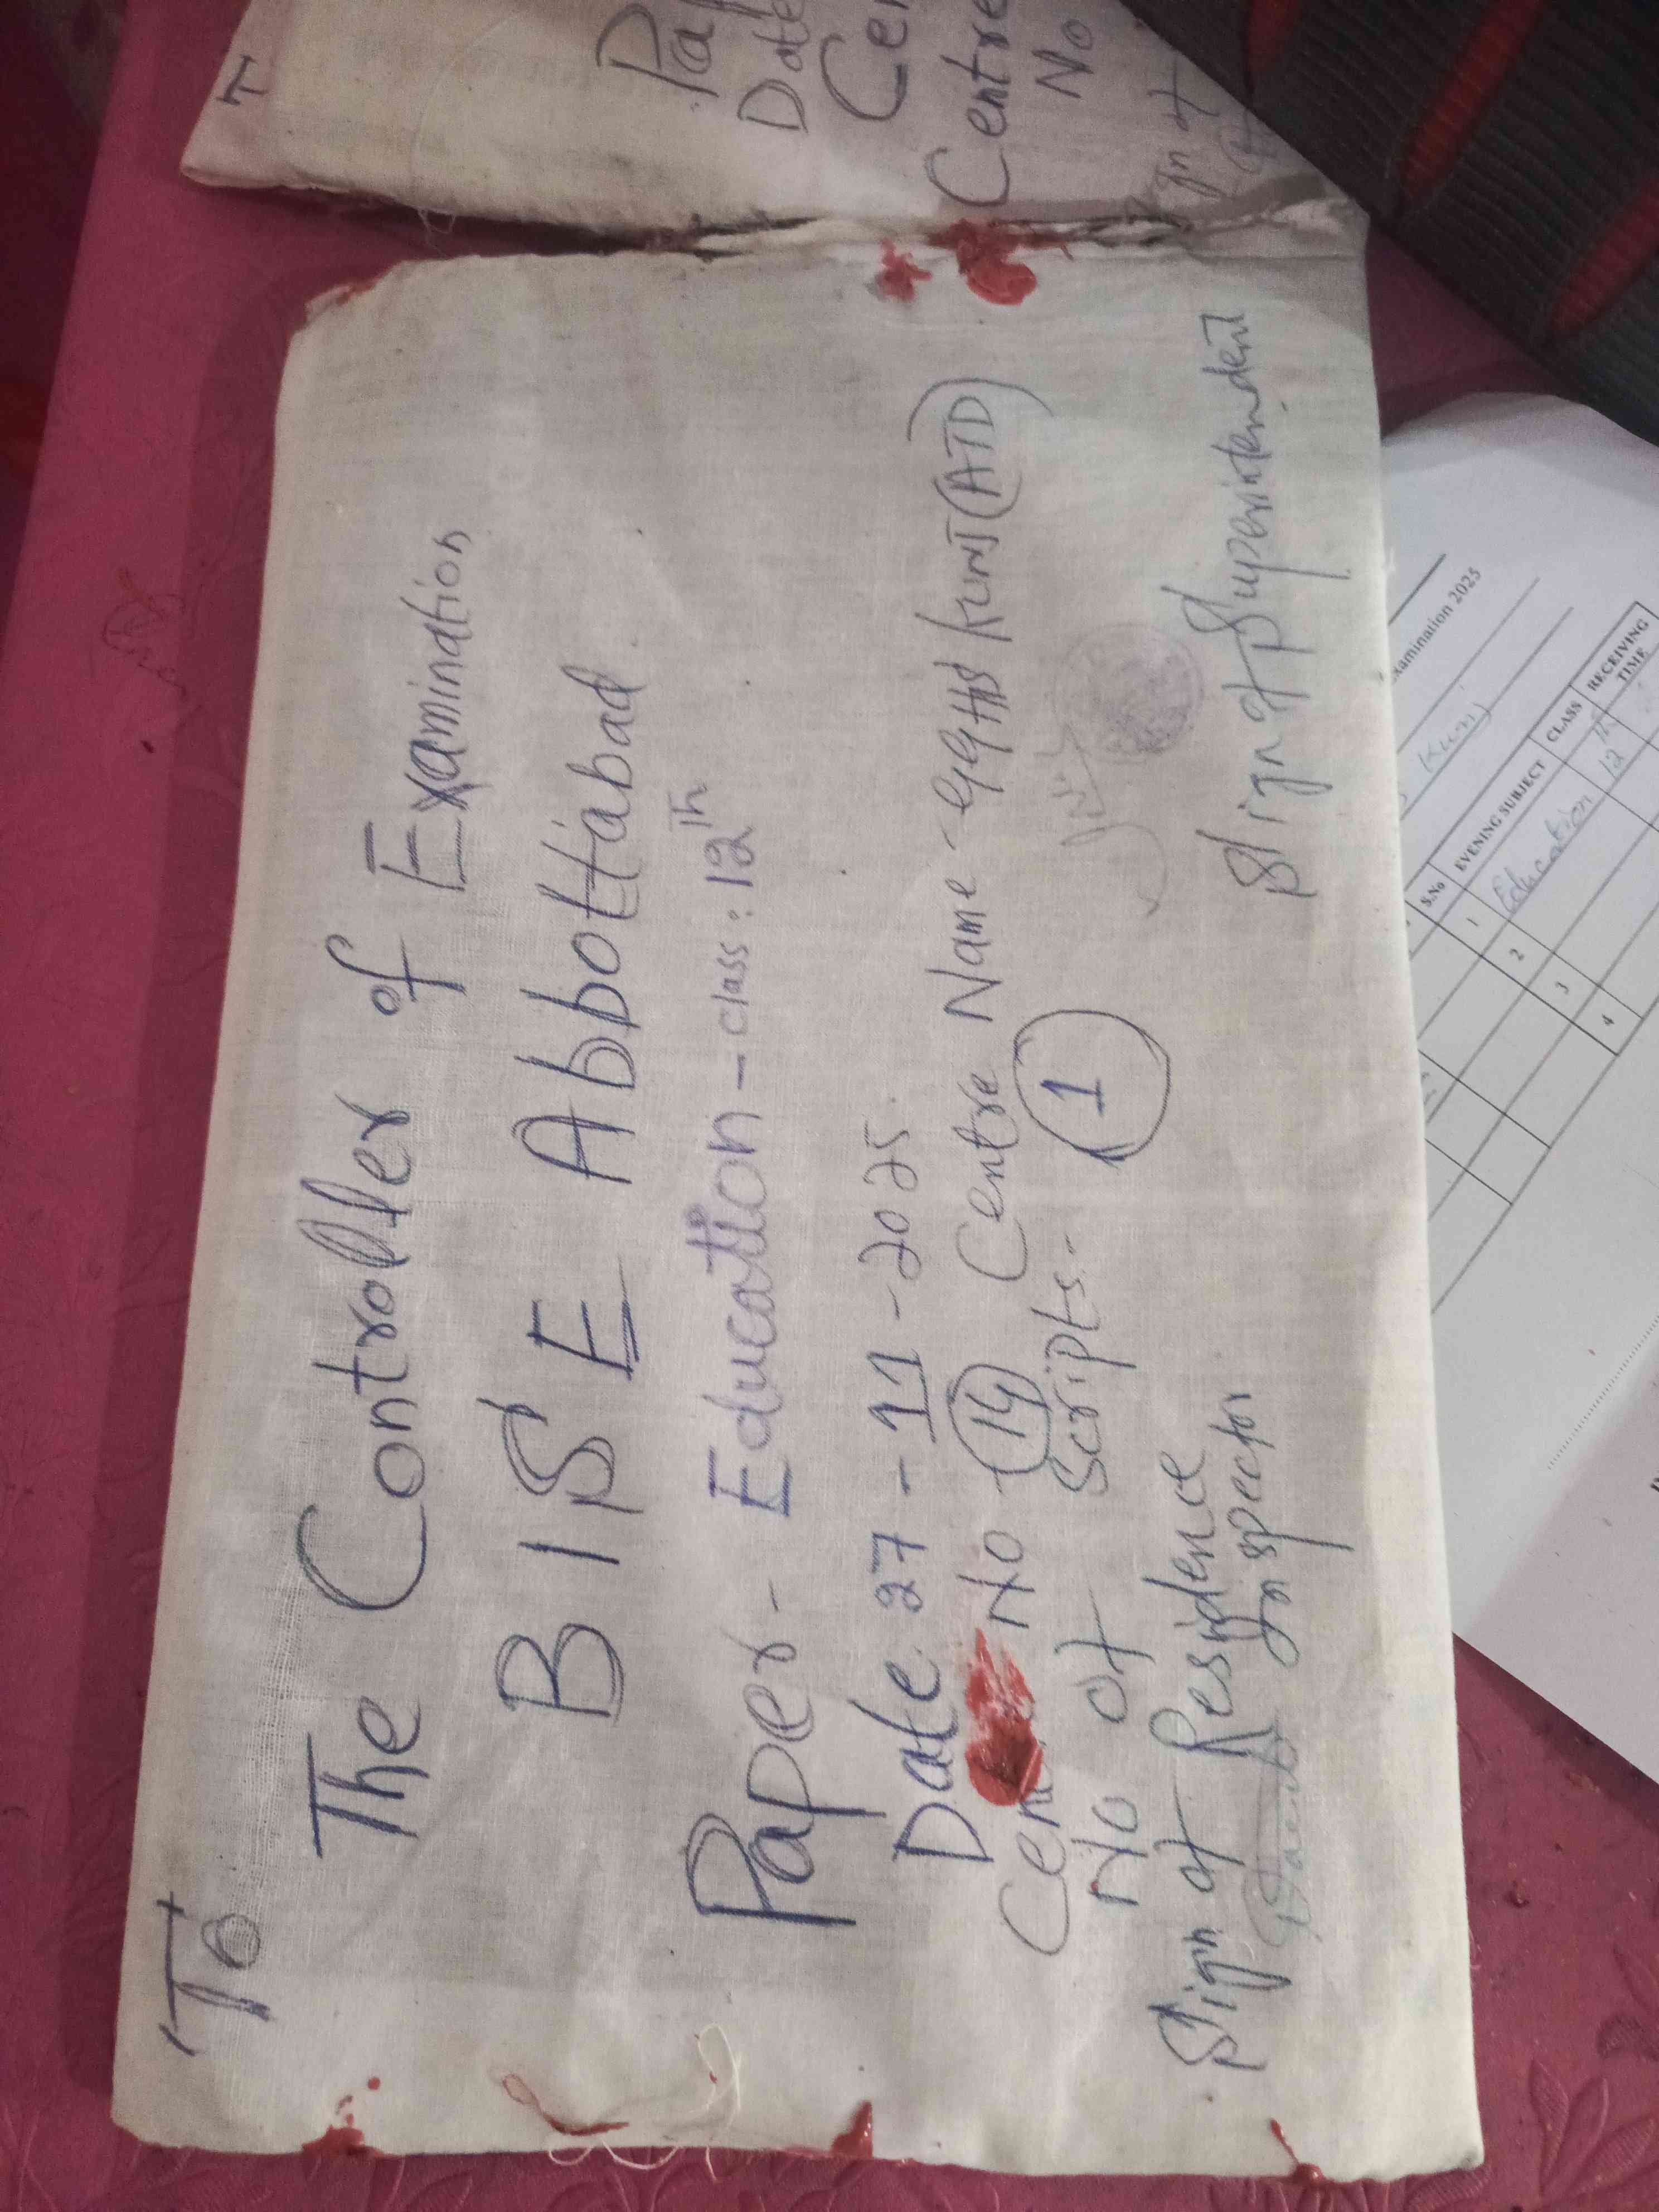 To
The Controller of Examination
BISE Abbottabad.
Paper - Education - class: 12th
Date. 27 - 11 - 2025.
No - 14 Centre Name - GGHS Kuni (ATD)
No of Scripts. - 1
Sign of Residence Inspector
Sign of Superintendent
T
Date
Centre
No
Examination 2025
Kuni)
S.No EVENING SUBJECT CLASS RECEIVING TIME
1 Education 12th
2
3
4